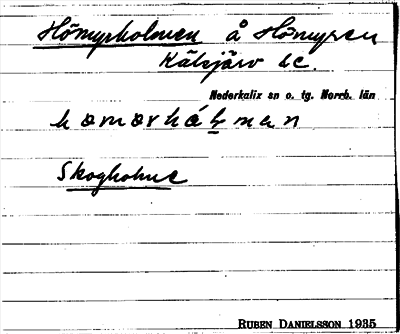 Hömyrholmen å Hömyren
Kälsjärv bc.
Nederkalix sn o. tg. Norrb. län
Skogholme
RUBEN DANIELSSON 1935